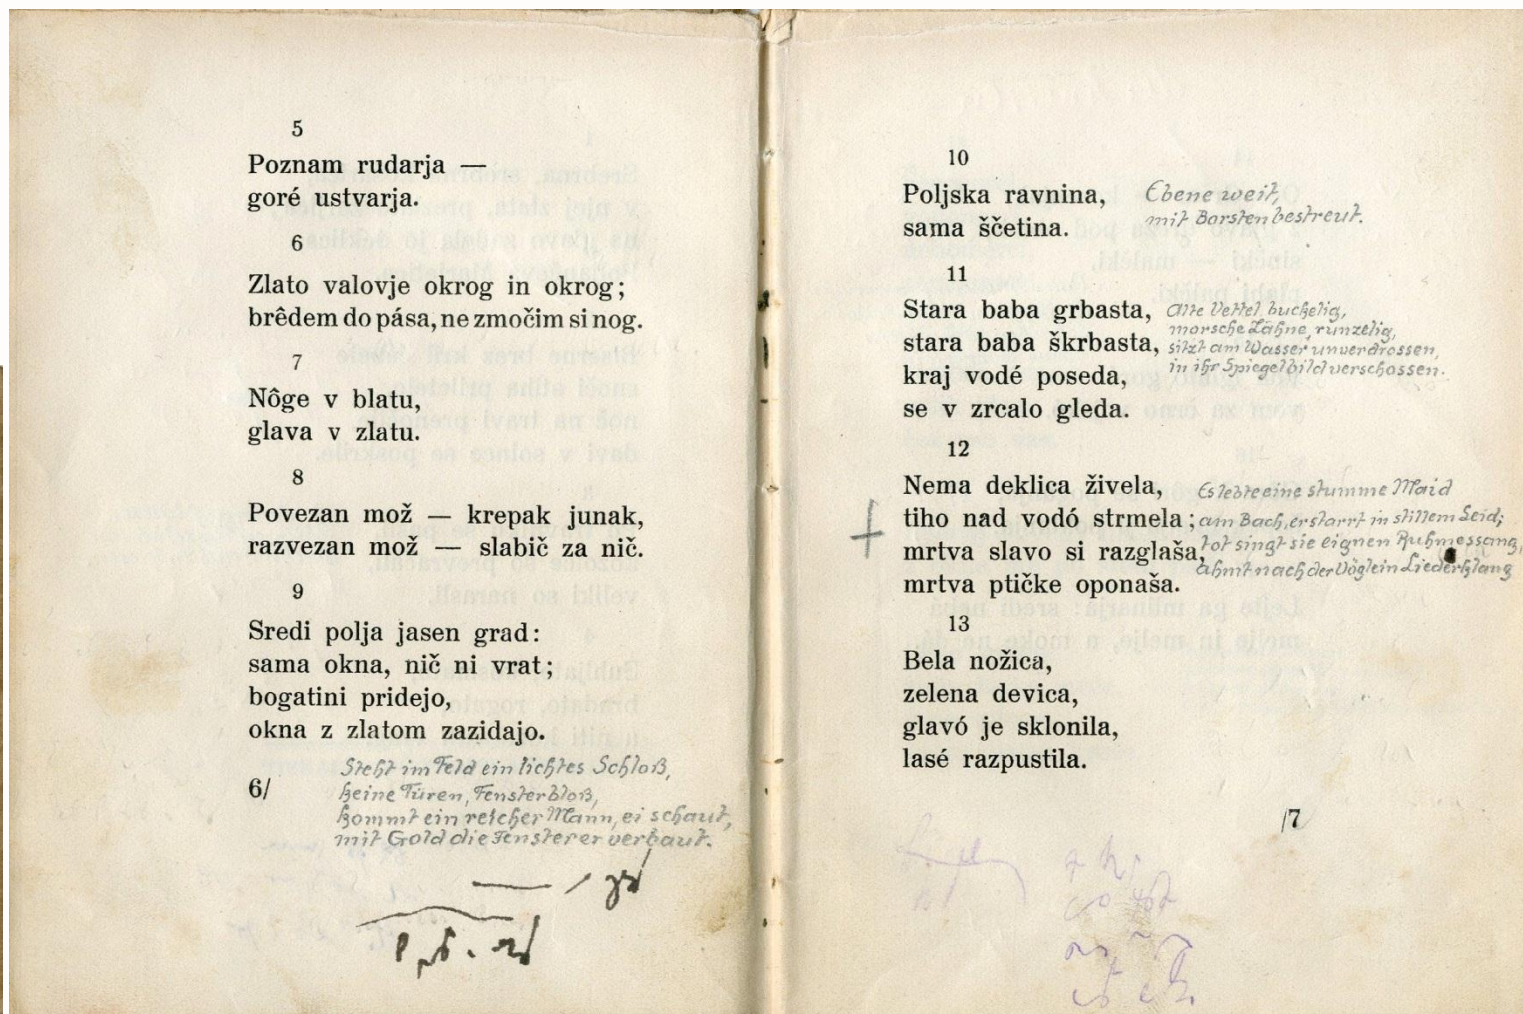 5
Poznam rudarja —
goré ustvarja.
6
Zlato valovje okrog in okrog;
brêdem do pása, ne zmočim si nog.
7
Nôge v blatu,
glava v zlatu.
8
Povezan mož — krepak junak,
razvezan mož — slabič za nič.
9
Sredi polja jasen grad:
sama okna, nič ni vrat;
bogatini pridejo,
okna z zlatom zazidajo.
Steht im Feld ein lichtes Schloß,
keine Türen, Fenster bloß,
kommt ein reicher Mann, ei schaut,
mit Gold die Fenster er verbaut.
6/
10
Poljska ravnina,
sama ščetina.
Ebene weit,
mit Borsten bestreut.
11
Stara baba grbasta,
stara baba škrbasta,
kraj vodé poseda,
se v zrcalo gleda.
Alte Vettel, buckelig,
morsche Zähne, runzelig,
sitzt am Wasser unverdrossen,
in ihr Spiegelbild verschossen.
12
Nema deklica živela,
tiho nad vodó strmela;
mrtva slavo si razglaša,
mrtva ptičke oponaša.
Es lebte eine stumme Maid
am Bach, erstarrt in stillem Leid;
tot singt sie eignen Ruhmessang,
ahmt nach der Vöglein Liederklang
13
Bela nožica,
zelena devica,
glavó je sklonila,
lasé razpustila.
/7